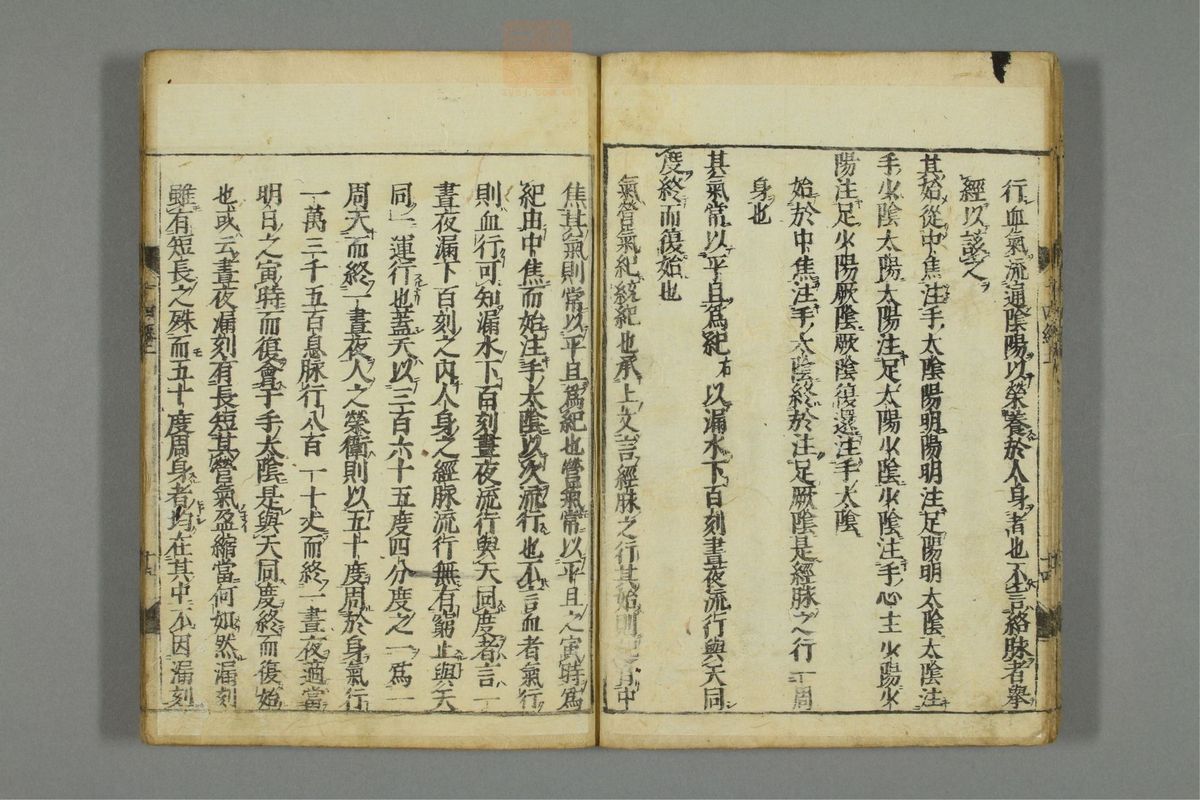 行血氣流通陰陽以榮養於人身者也不言絡脉者舉
經以該之
其始從中焦注手太陰陽明陽明注足陽明太陰太陰注
手少陰太陽太陽注足太陽少陰少陰注手心主少陽少
陽注足少陽厥陰厥陰復還注手太陰
始於中焦注手太陰終於注足厥陰是經脉之行一周
身也
其氣常以平旦爲紀以漏水下百刻晝夜流行與天同
度終而復始也
氣營氣紀統紀也承上文言經脉之行其始則起自中
焦其氣則常以平旦爲紀也營氣常以平旦之寅時爲
紀由中焦而始注手太陰以次流行也不言血者氣行
則血行可知漏水下百刻晝夜流行與天同度者言一
晝夜漏下百刻之内人身之經脉流行無有窮止與天
同一運行也蓋天以三百六十五度四分度之一爲一
周天而終一晝夜人之榮衛則以五十度周於身氣行
一萬三千五百息脉行八百一十丈而終一晝夜適當
明日之寅時而復會于手太陰是與天同度終而復始
也或云晝夜漏刻有長短其營氣盈縮當何如然漏刻
雖有短長之殊而五十度周身者均在其中不因漏刻
十四經上